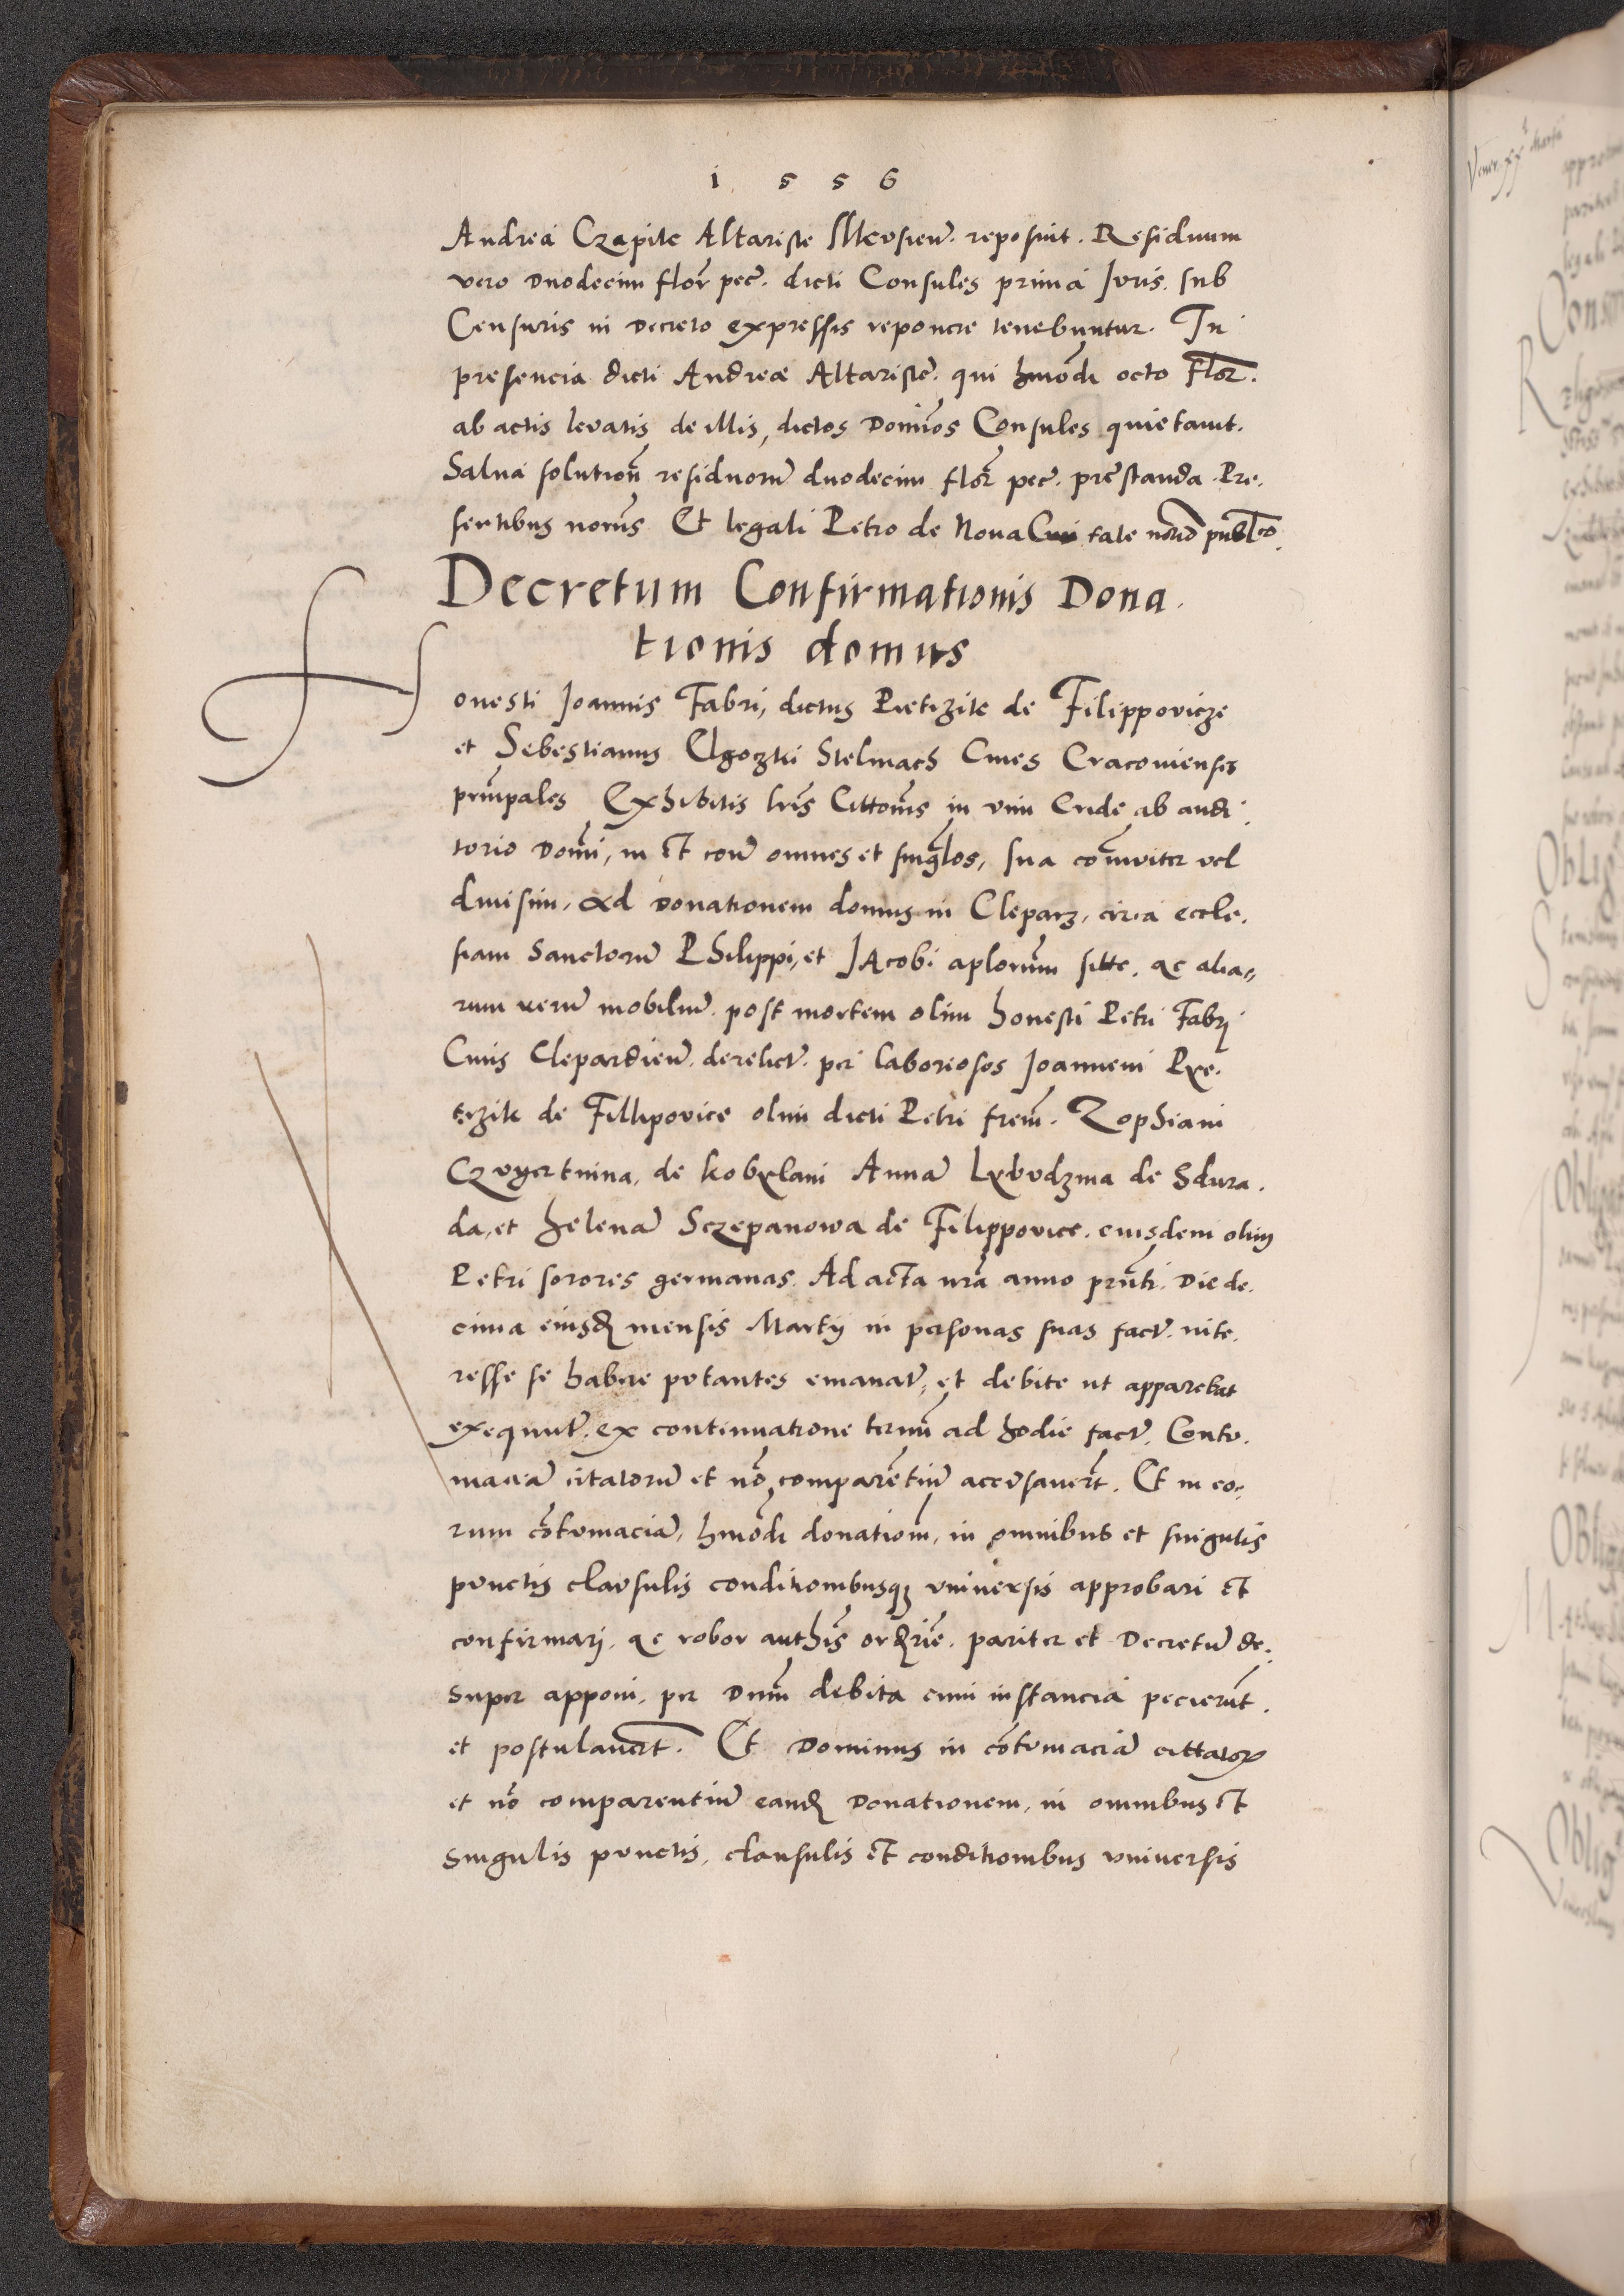 1556
Andrea Czapile Altariste reposuit. Residuum
vero Duodecim florʳ pecᵉ. dicti Consules prima Juris. sub
Censuris in Decreto expressis reponere tenebuntur. In
presencia dicti Andreæ Altariste. qui hmõdi octo Floř.
ab actis levatis de illis, dictos Domĩos Consules quietavit.
Salva solutioñ residuorũ duodecim floř pecᵉ. prestanda. Pre.
sentibus Et legali Petro de Nova Civi tate nořio publco.
Decretum Confirmationis Dona.
tionis domus
Honesti Joannis Fabri, dictus Pietrzile de Filippovicze
et Sebestianus Stelmach Cives Cracovienses
prinpales Exhibitis lrĩs Cittoñis in vim Cride ab audi.
torio Domĩ, in et coñ omnes et singłos, sua comũiter vel
divisim, ad donationem domus in Cleparz, circa eccle.
siam Sanctorũ Philippi, et Jacobi aplorũm sitte. ac alia⸗
rum rerũ mobiliũ. post mortem olim honesti Petri Fabrj
Civis Clepardieñ. derelictʳ. per Laboriosos Joannem Pye.
trzile de Fillipovice olim dicti Petri frem̃. Zophiam
Czvyertnina, de kobylani Annã Lybvdzina de Sdura.
da, et helenã Sczepanowa de Filippovice. eiusdem olim
Petri sorores germanas. Ad acta nrã anno prñti. Die de.
cima eiusđ mensis Martij in personas suas factʳ. inte.
resse se habere putantes emanatʳ, et debite ut apparebat
exequutʳ. ex continuatione termĩ ad hodie factʳ. Contu.
maciã citatorũ et nõ comparẽtiũ accusavert̃. Et in eo⸗
rum cõtumaciã, hmõdi donatioñ, in omnibus et singulis
punctis clausulis conditionibusqз universis approbari et
confirmarj. ac robor authĩs orđrie. pariter et Decretũ de.
super apponi. per Dnũm debita cum instancia pecierũt.
et postulavert̃. Et Dominus in cõtumaciã cittatorꝝ
et nõ comparentiũ eandđ Donationem, in omnibus et
singulis punctis, clausulis et conditionibus universis